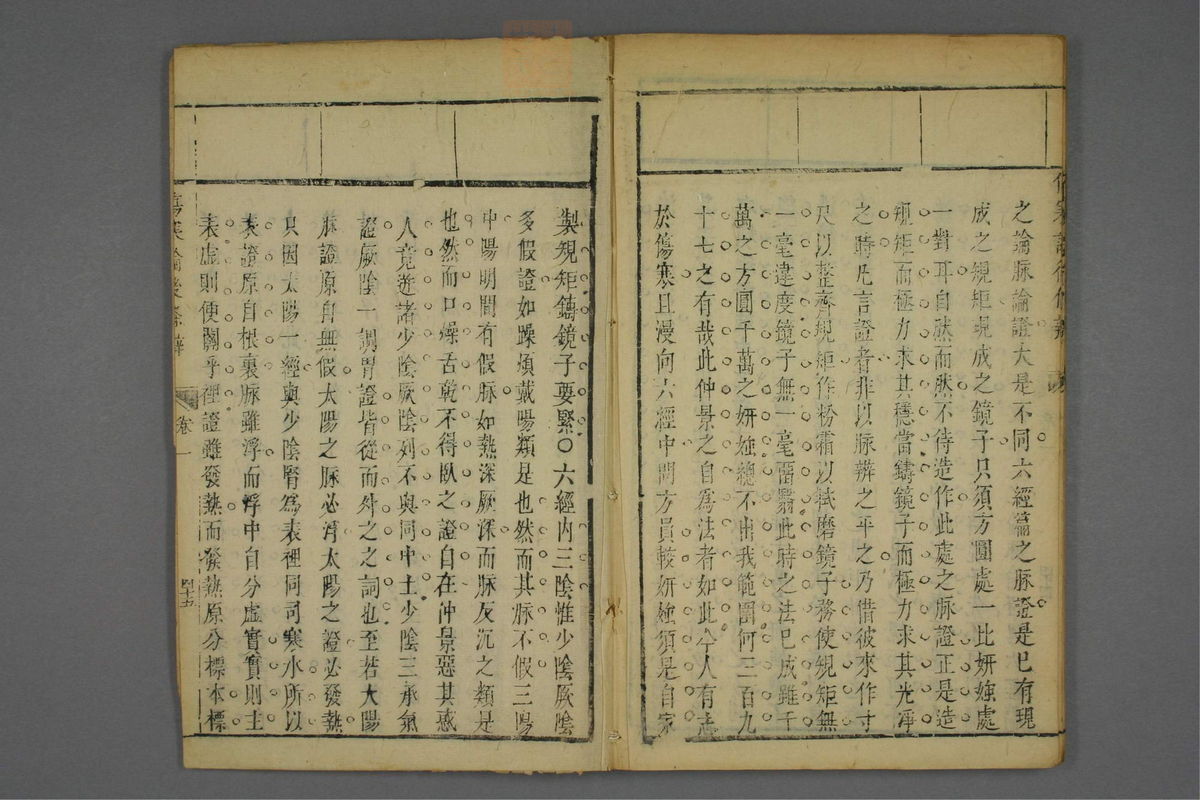 之論脉論證大是不同六經篇之脉證是已有現
成之規矩現成之鏡子只須方圓處一比妍媸處
一對耳自然而然不待造作此處之脉證正是造
規矩而極力求其穩當鑄鏡子而極力求其光淨
之時凡言證者非以脉辨之平之乃借彼來作寸
尺以整齊規矩作粉霜以拭磨鏡子務使規矩無
一毫違度鏡子無一毫畱翳此時之法已成雖千
萬之方圓千萬之妍媸總不出我範圍何三百九
十七之有哉此仲景之自爲法者如此今人有志
於傷寒且漫向六經中問方員較妍媸須是自家
製規矩鑄鏡子要緊○六經内三陰惟少陰厥陰
多假證如躁煩戴陽類是也然而其脉不假三陽
中陽明間有假脉如熱深厥深而脉反沉之類是
也然而口燥舌乾不得臥之證自在仲景惡其惑
人竟遊諸少陰厥陰列不與同中土少陰三承氣
證厥陰一調胃證皆從而外之之詞也至若太陽
脉證原自無假太陽之脉必浮太陽之證必發熱
只因太陽一經與少陰腎爲表裡同司寒水所以
表證原自根裏脉雖浮而浮中自分虛實實則主
表虛則便關乎裡證雖發熱而發熱原分標本標
傷寒論後條辨 卷一 四十五